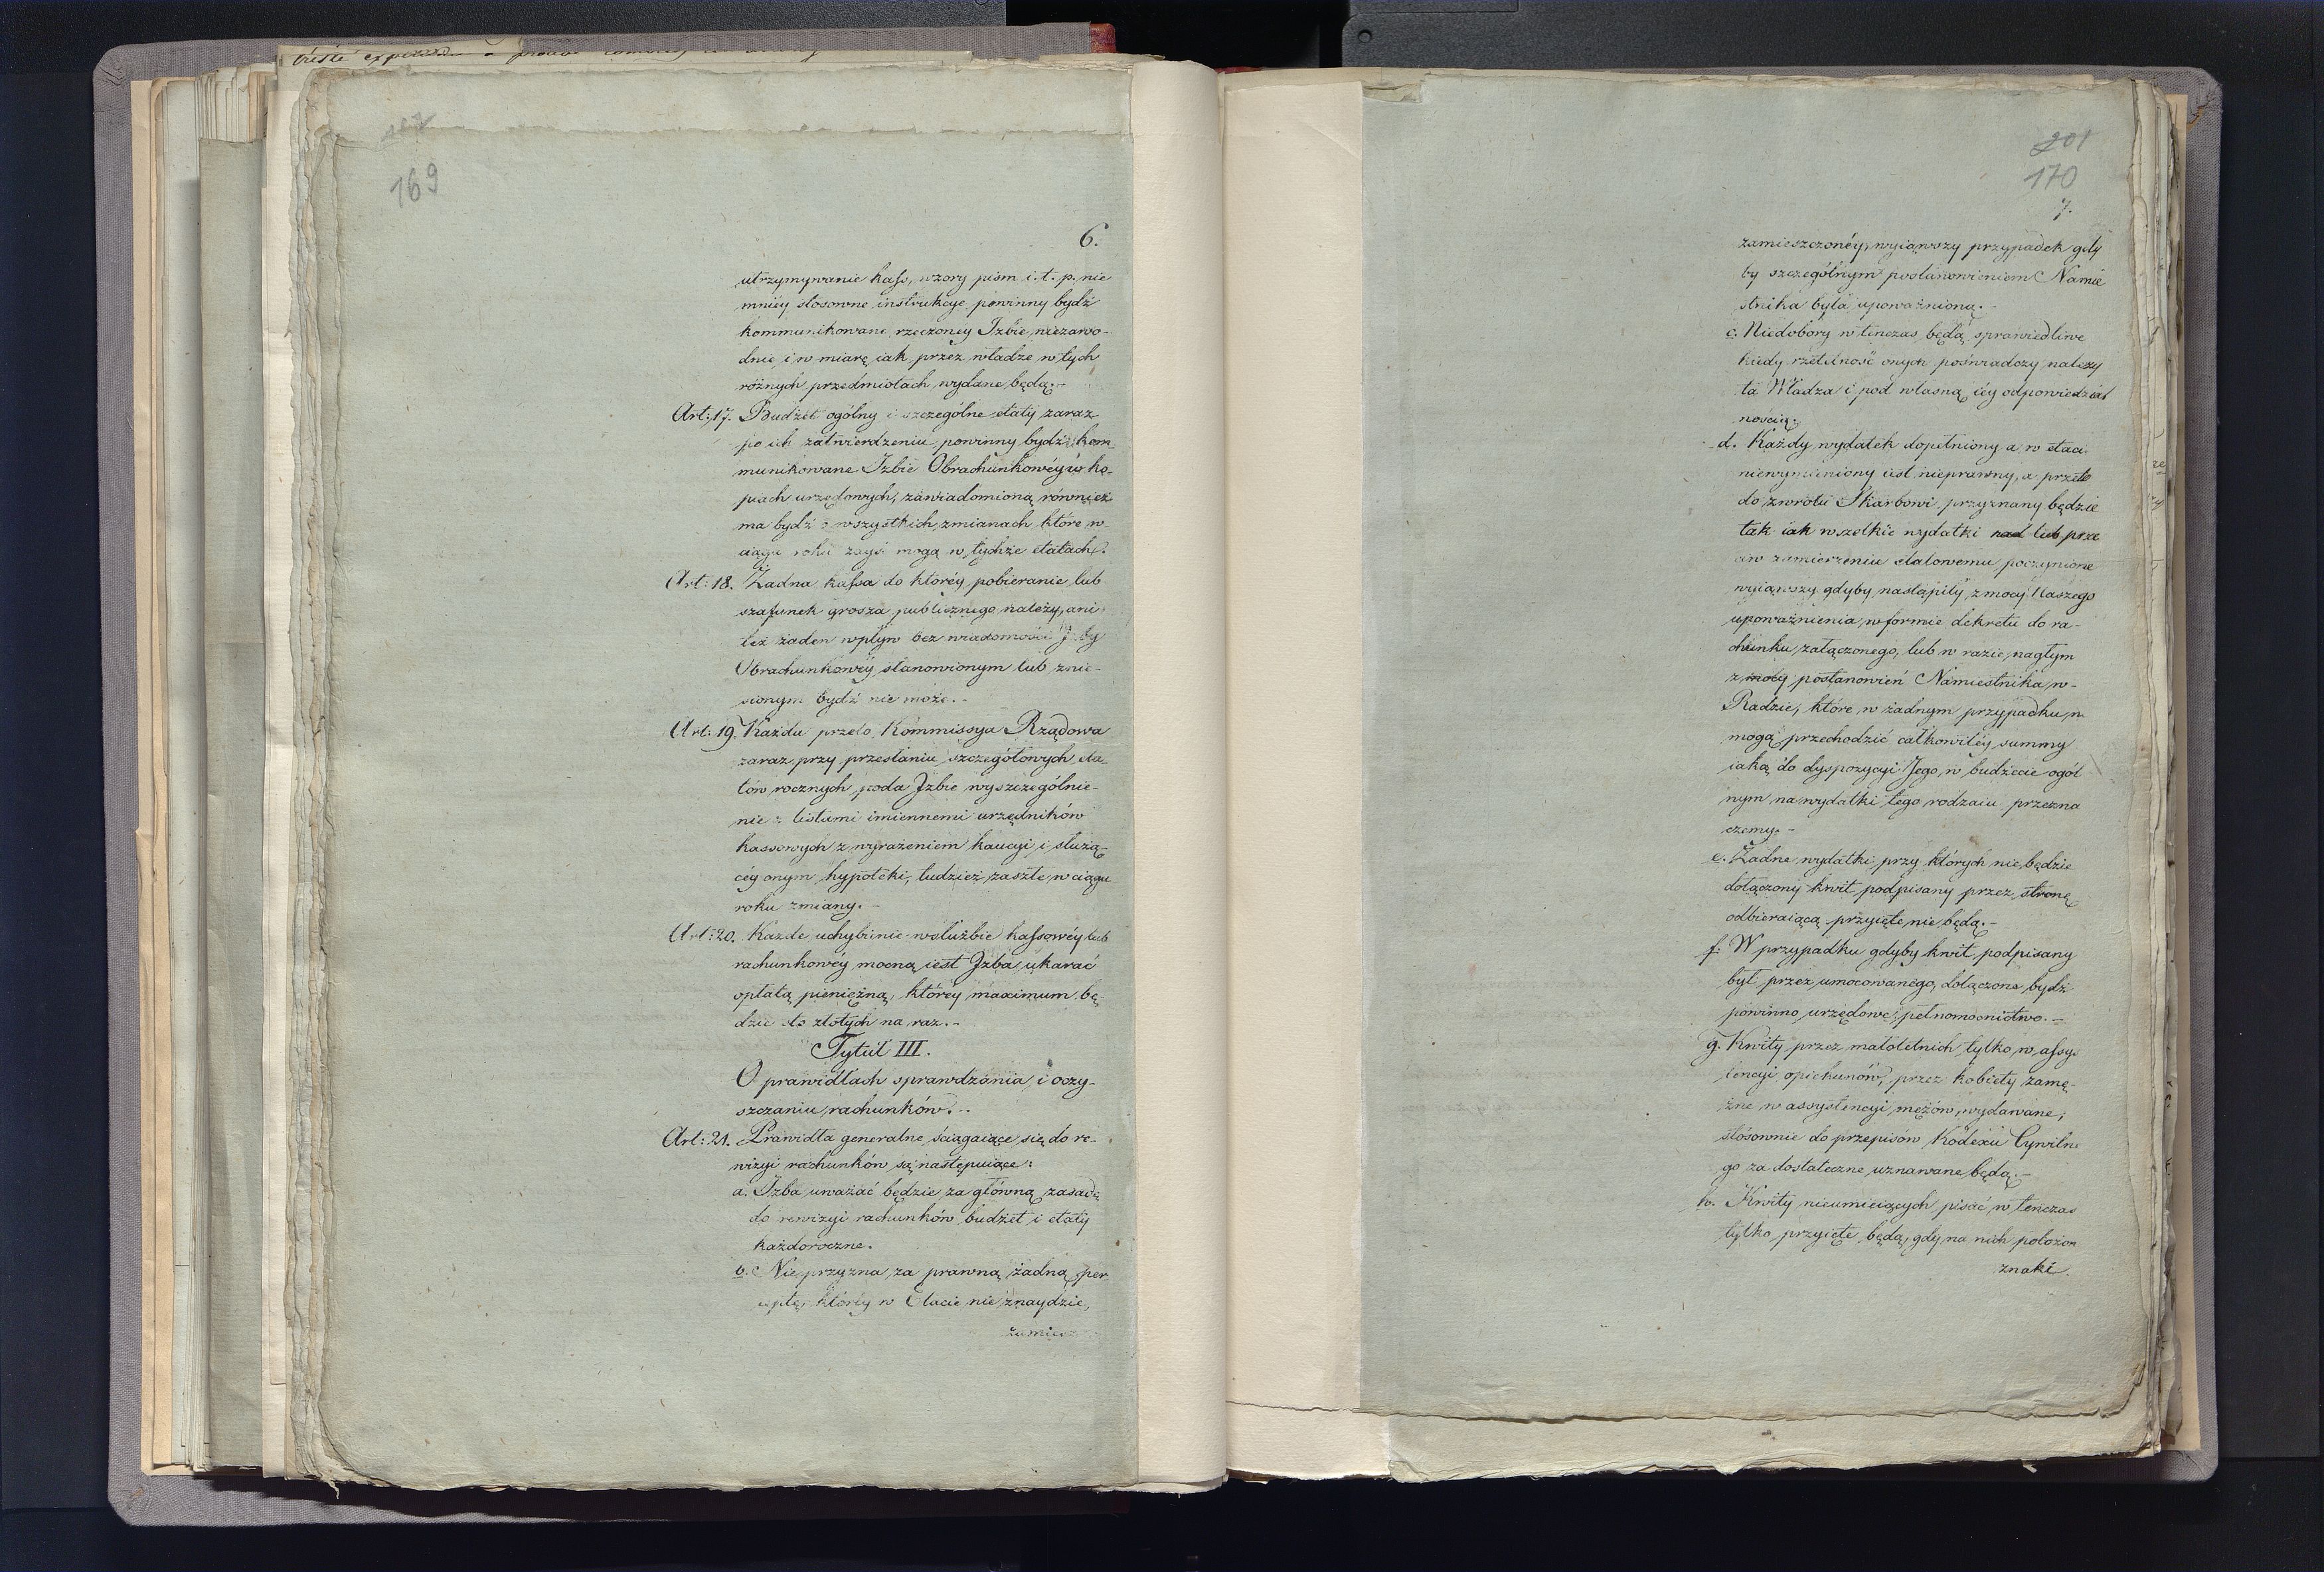 169
6.
utrzymywanie kass, wzory pism i. t. p. nie
mniéy stosowne instrukcye powinny bydź
kommunikowane rzeczoney Izbie niezawo-
dnie i w miarę iak przez władze w tych
różnych przedmiotach wydane będą.-
Art: 17. Budżet ogólny i szczególne etaty zaraz
po ich zatwierdzeniu, powinny bydź kom
munikowane Izbie Obrachunkowéy w ko-
piach urzędowych, zawiadomioną również
ma bydź o wszystkich zmianach które w
ciągu roku zayść mogą w tychże etatach.
Art: 18. Żadna kassa do któréy pobieranie lub
szafunek grosza publicznego należy, ani
też żaden wpływ bez wiadomości Izby
Obrachunkowéy stanowionym lub znie-
sionym bydź nie może.-
Art: 19. Każda przeto Kommissya Rządowa
zaraz przy przesłaniu szczegółowych eta-
tów rocznych poda Izbie wyszczególnie-
nie z listami imiennemi urzędników
kassowych z wyrażeniem kaucyi i służą-
céy onym hypoteki, tudzież zaszłe w ciągu
roku zmiany.-
Art: 20. Każde uchybienie w służbie kassowéy lub
rachunkowéy mocną iest Izba ukarać
opłatą pieniężną, któréy maximum bę-
dzie sto złotych na raz.-
Tytuł III.
O prawidłach sprawdzania i oczy-
szczaniu rachunków.-
Art: 21. Prawidła generalne ściągaiące się do re-
wizyi rachunków są następuiące:
a. Izba uważać będzie za główną zasadę
do rewizyi rachunków budżet i etaty
każdoroczne.
b. Nie przyzna za prawną żadną per
ceptę, któréy w Etacie nie znaydzie,
zamiesz
201
170
7.
zamieszczonéy, wyiąwszy przypadek gdy
by szczególnym postanowieniem Namie
stnika była upoważnioną.-
c. Niedobory wtenczas będą sprawiedliwe
kiedy rzetelność onych poświadczy należy
ta Władza i pod własną iéy odpowiedzial
nością.
d. Każdy wydatek dopełniony a w etaci
niewymieniony iest nieprawny, a przeto
do zwrotu Skarbowi przyznany będzie
tak iak wszelkie wydatki nad lub prze
ciw zamierzeniu etatowemu poczynione
wyiąwszy gdyby nastąpiły z mocy Naszego
upoważnienia w formie dekretu do ra-
chunku załączonego, lub w razie nagłym
z mocy postanowień Namiestnika w-
Radzie, które w żadnym przypadku n
mogą przechodzić całkowitéy summy
iaką do dyspozycyi Jego, w budżecie ogól
nym na wydatki tego rodzaiu przezna
czemy.-
e. Żadne wydatki przy których nie będzie
dołączony kwit podpisany przez stronę
odbieraiącą przyięte nie będą.-
f. W przypadku gdyby kwit podpisany
był przez umocowanego, dołączone bydź
powinno urzędowe pełnomocnictwo.-
g. Kwity przez małoletnich tylko w assy-
tencyi opiekunów, przez kobiety zamę-
żne w assystencyi mężów, wydawane,
stósownie do przepisów Kodexu Cywilne
go za dostateczne uznawane będą.-
h. Kwity nieumieiących pisać w tenczas
tylko przyięte będą, gdy na nich położon
znaki.